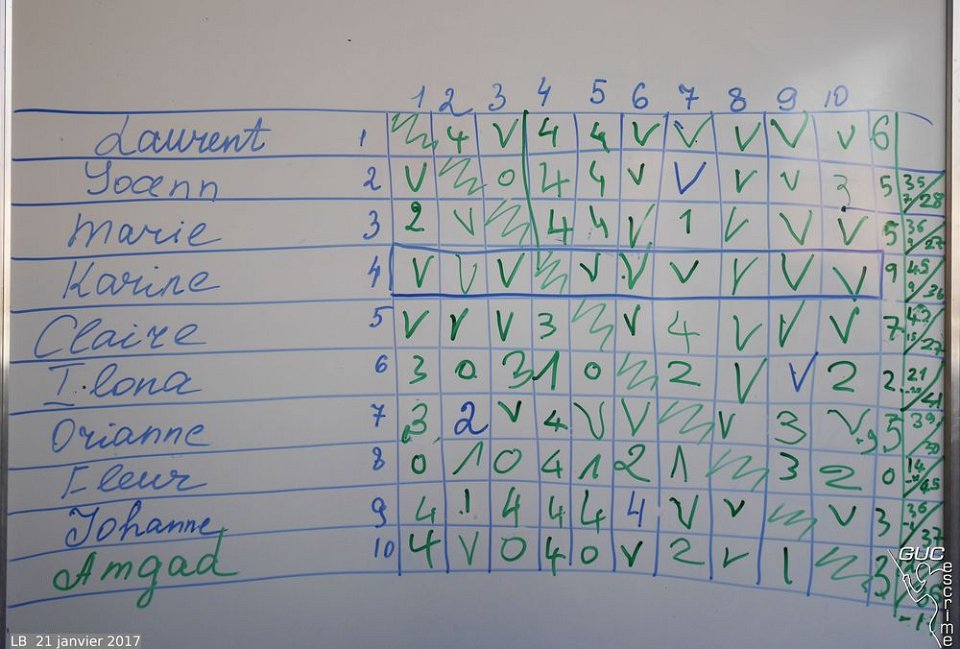 1 2 3 4 5 6 7 8 9 10
Laurent 1 4 V 4 4 V V V V V 6
Yoann 2 V 0 4 4 V V V V 3 5 35/28 7
Marie 3 2 V 4 4 V 1 V V V 5 36/27 9
Karine 4 V V V V V V V V V 9 45/36 9
Claire 5 V V V 3 V 4 V V V 7 42/27 15
Ilona 6 3 0 3 1 0 2 V V 2 2 21/41 -20
Orianne 7 3 2 V 4 V V V 3 V 5 39/30 +9
Fleur 8 0 1 0 4 1 2 1 3 2 0 14/45
Johanne 9 4 1 4 4 4 4 V V V 3 36/37 -1
Amgad 10 4 V 0 4 0 V 2 V 1 3
GUC
escrime
LB 21 janvier 2017